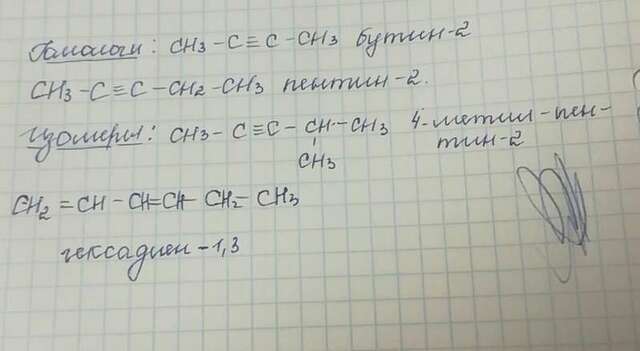 Гомологи: CH3-C≡C-CH3 бутин-2
CH3-C≡C-CH2-CH3 пентин-2.
Изомеры: CH3-C≡C-CH-CH3 4-метил-пен-
CH3 тин-2
CH2=CH-CH=CH-CH2-CH3
гексадиен-1,3